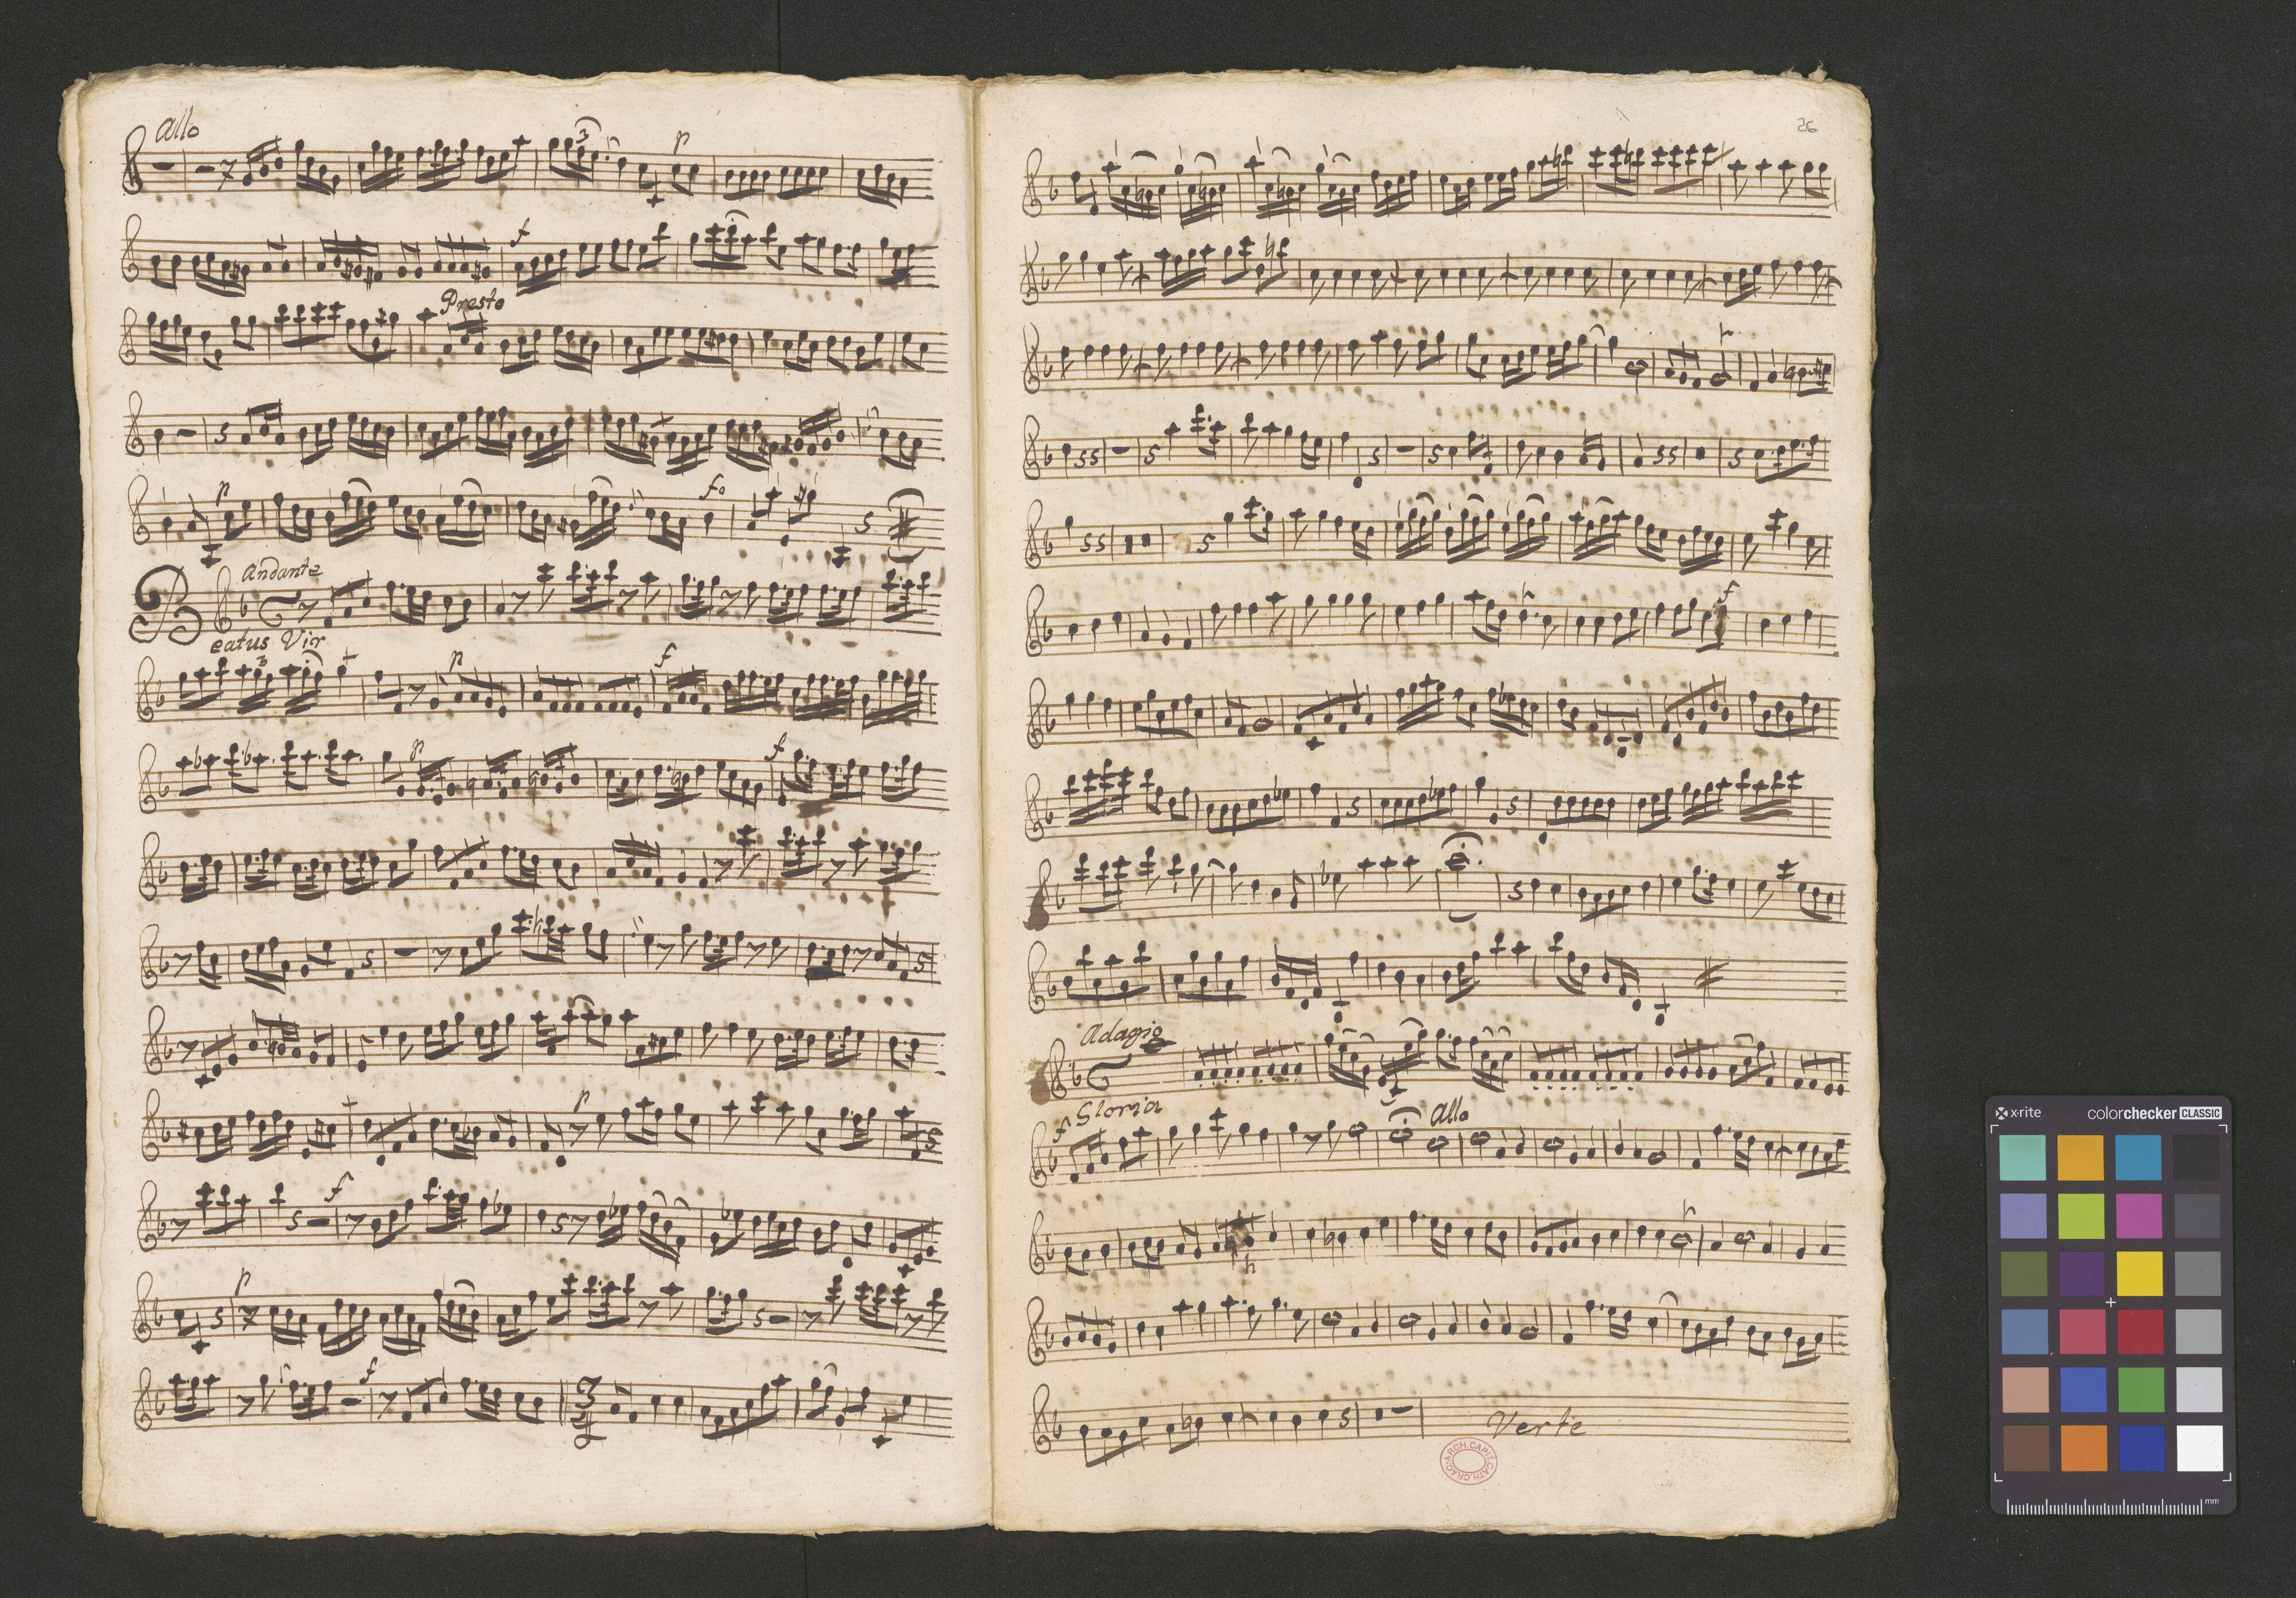 allo
3
p
f
Presto
p
fo
Andante
Beatus Vir
3
p
f
p
f
p
f
p
f
3
4
26
f
Adagio
Gloria
f
allo
Verte
ARCH. CAPIT. CATH. CRAC.
x-rite
colorchecker CLASSIC
mm